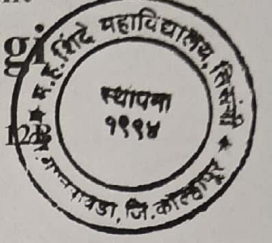 gi
★ म.ह. शिंदे महाविद्यालय, तिसंगी ★
स्थापना
१९९४
गगनबावडा, जि. कोल्हापूर